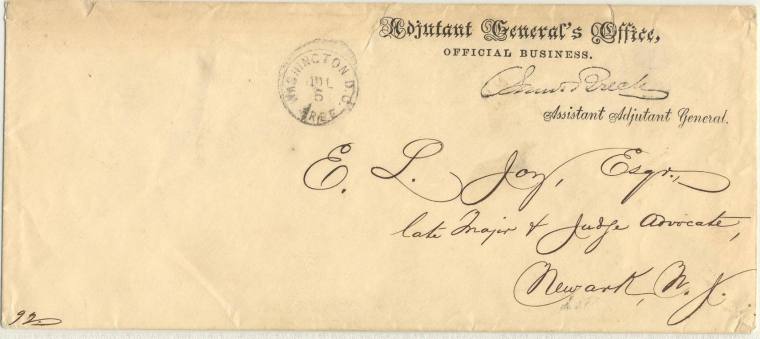 Adjutant General's Office,
OFFICIAL BUSINESS.
WASHINGTON D.C.
JUL
5
FREE
Samuel Breck
Assistant Adjutant General.
E. L. Joy, Esqr.,
late Major & Judge Advocate,
Newark, N. J.
92